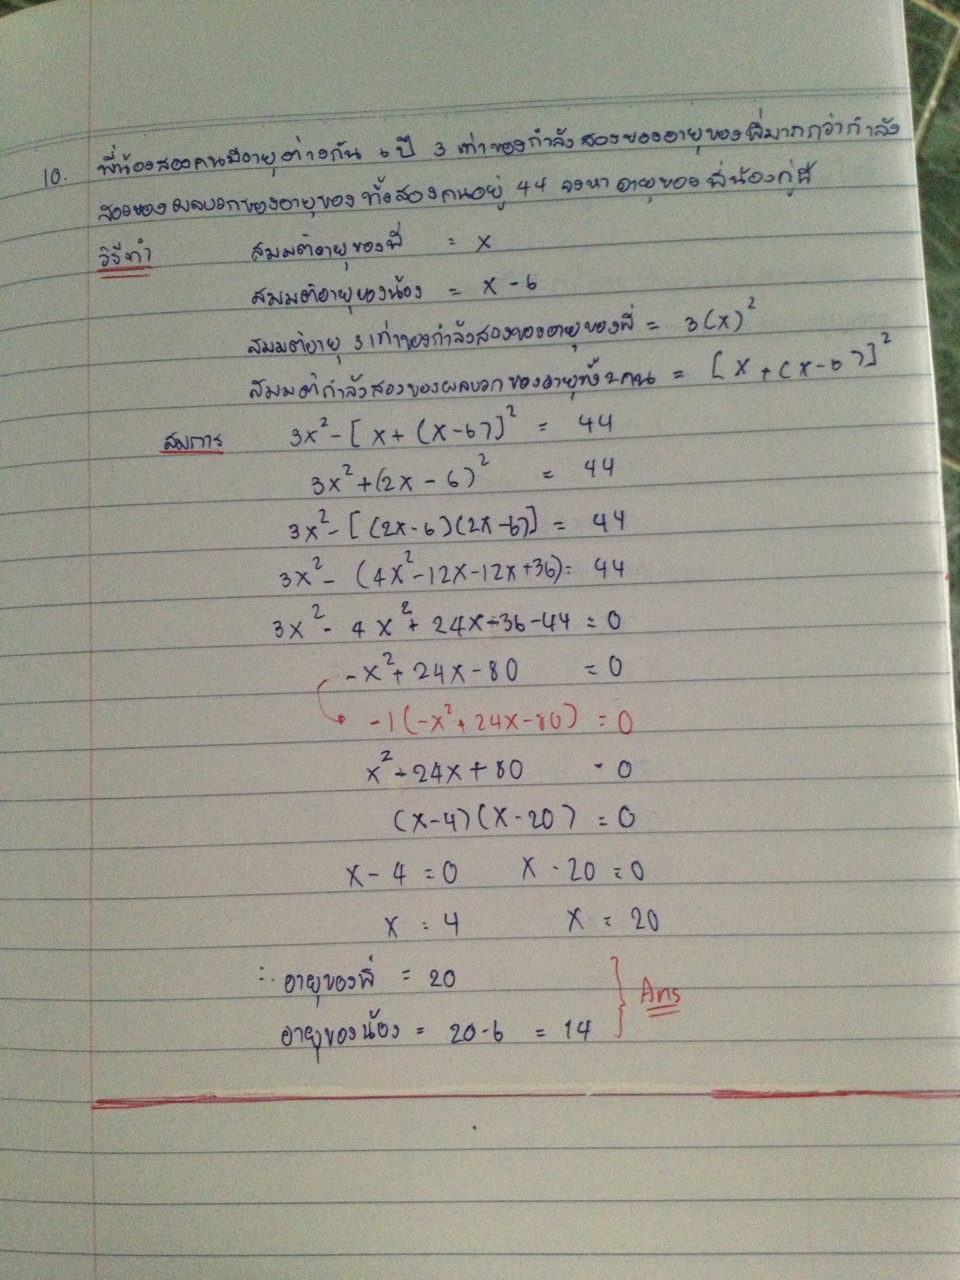 10. พี่น้องสองคนมีอายุต่างกัน 6 ปี 3 เท่าของกำลังสองของอายุของพี่มากกว่ากำลัง
สองของผลบวกของอายุของทั้งสองคนอยู่ 44 จงหาอายุของพี่น้องคู่นี้
วิธีทำ สมมติอายุของพี่ = x
สมมติอายุของน้อง = x - 6
สมมติอายุ 3 เท่าของกำลังสองของอายุของพี่ = 3(x)²
สมมติกำลังสองของผลบวกของอายุทั้ง 2 คน = [x + (x - 6)]²
สมการ 3x² - [x + (x - 6)]² = 44
3x² + (2x - 6)² = 44
3x² - [(2x - 6)(2x - 6)] = 44
3x² - (4x² - 12x - 12x + 36) = 44
3x² - 4x² + 24x - 36 - 44 = 0
-x² + 24x - 80 = 0
-1(-x² + 24x - 80) = 0
x² - 24x + 80 = 0
(x - 4)(x - 20) = 0
x - 4 = 0 x - 20 = 0
x = 4 x = 20
∴ อายุของพี่ = 20
อายุของน้อง = 20 - 6 = 14 } Ans